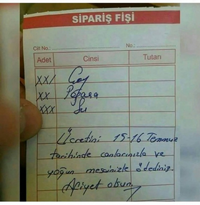 SİPARİŞ FİŞİ
Cilt No: No:
Adet Cinsi Tutarı
XX/ Çay
XX Poğaça
XXX Su
Ücretini 15-16 Temmuz
tarihinde canlarınızla ve
yoğun mesainizle ödediniz
Afiyet olsun